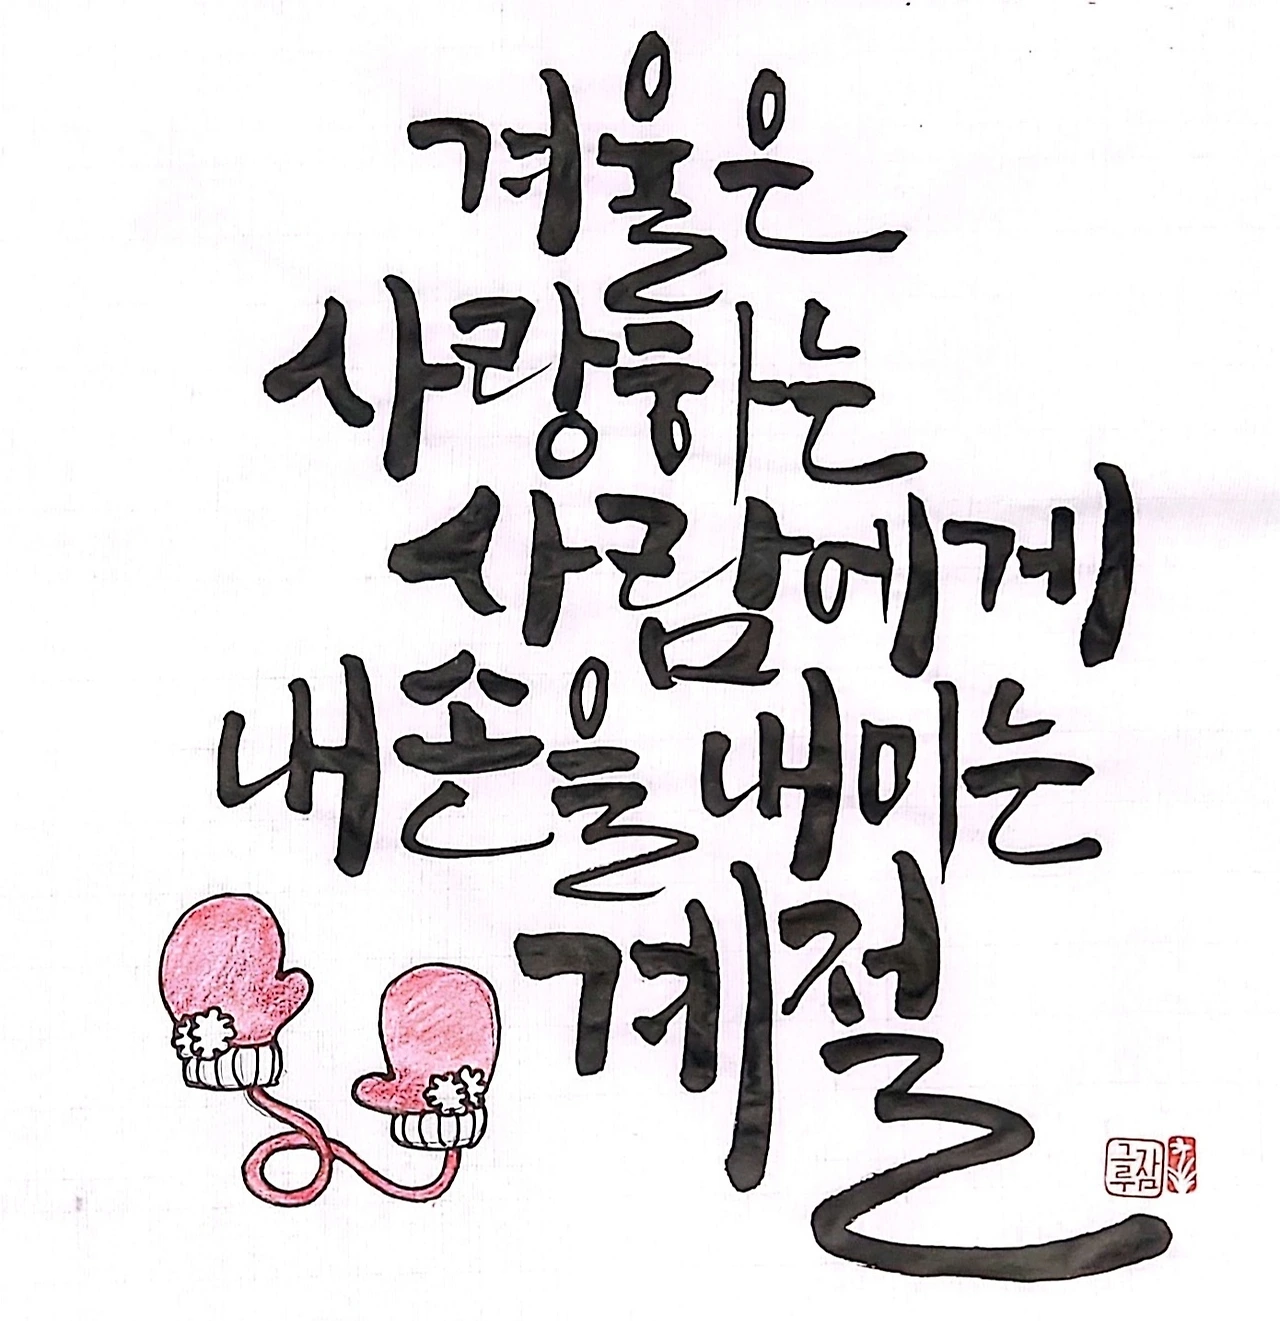 겨울은
사랑하는
사람에게
내손을 내미는
계절